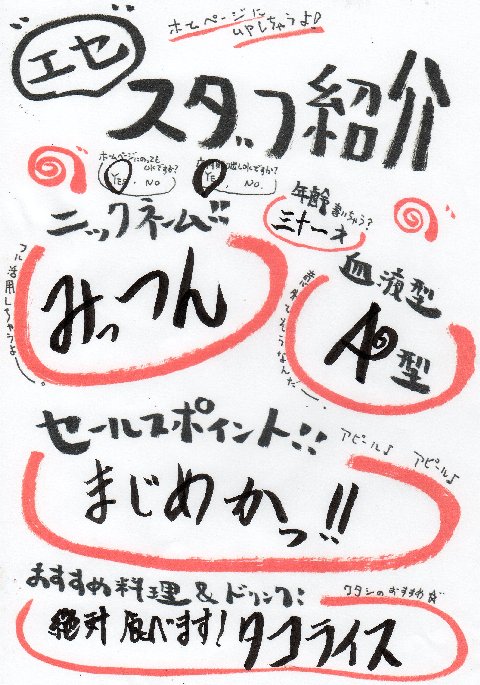 ホームページに
UPしちゃうよ!
エセ
スタッフ紹介
ホームページにのっても
いいですか?
YES. NO
YES. NO.
年齢書いちゃう?
三十一才
ニックネーム!!
みっつん
フル活用しちゃうよ〜。
血液型
Aの型
セールスポイント!!
アピール♪ アピール♪
まじめかっ!!
おすすめ料理&ドリンク:
ワタシのおすすめ☆
絶対食べます! タコライス